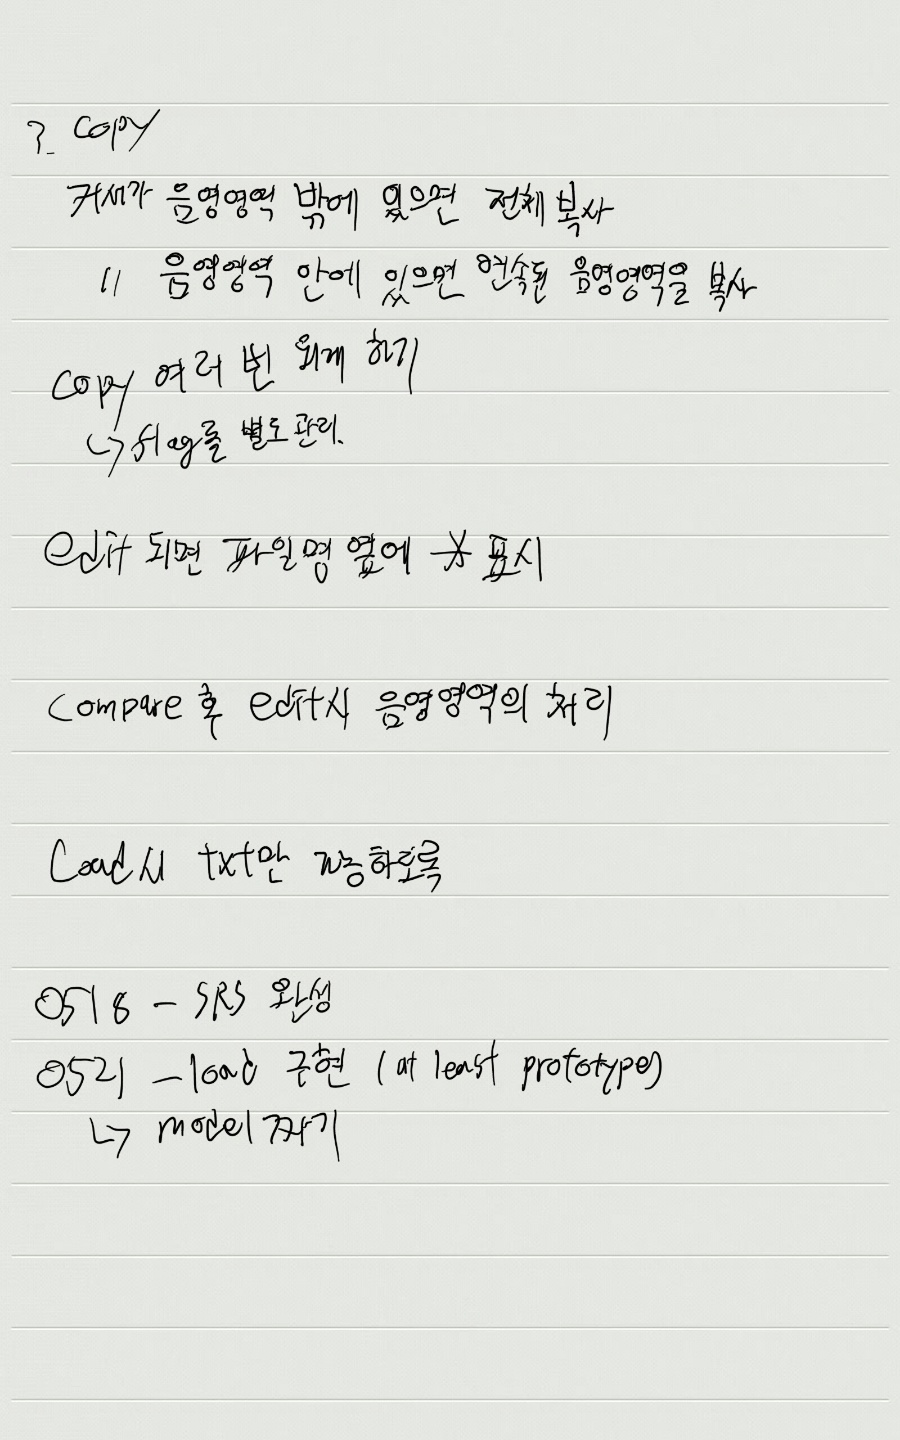 ?. Copy
커서가 음영영역 밖에 있으면 전체 복사
〃 음영영역 안에 있으면 연속된 음영영역을 복사
Copy 여러 번 되게 하기
↳ flag를 별도 관리.
edit 되면 파일명 옆에 * 표시
Compare 후 edit시 음영영역의 처리
Load시 txt만 가능하도록
0518 - SRS 완성
0521 - load 구현 (at least prototype)
↳ model 짜기